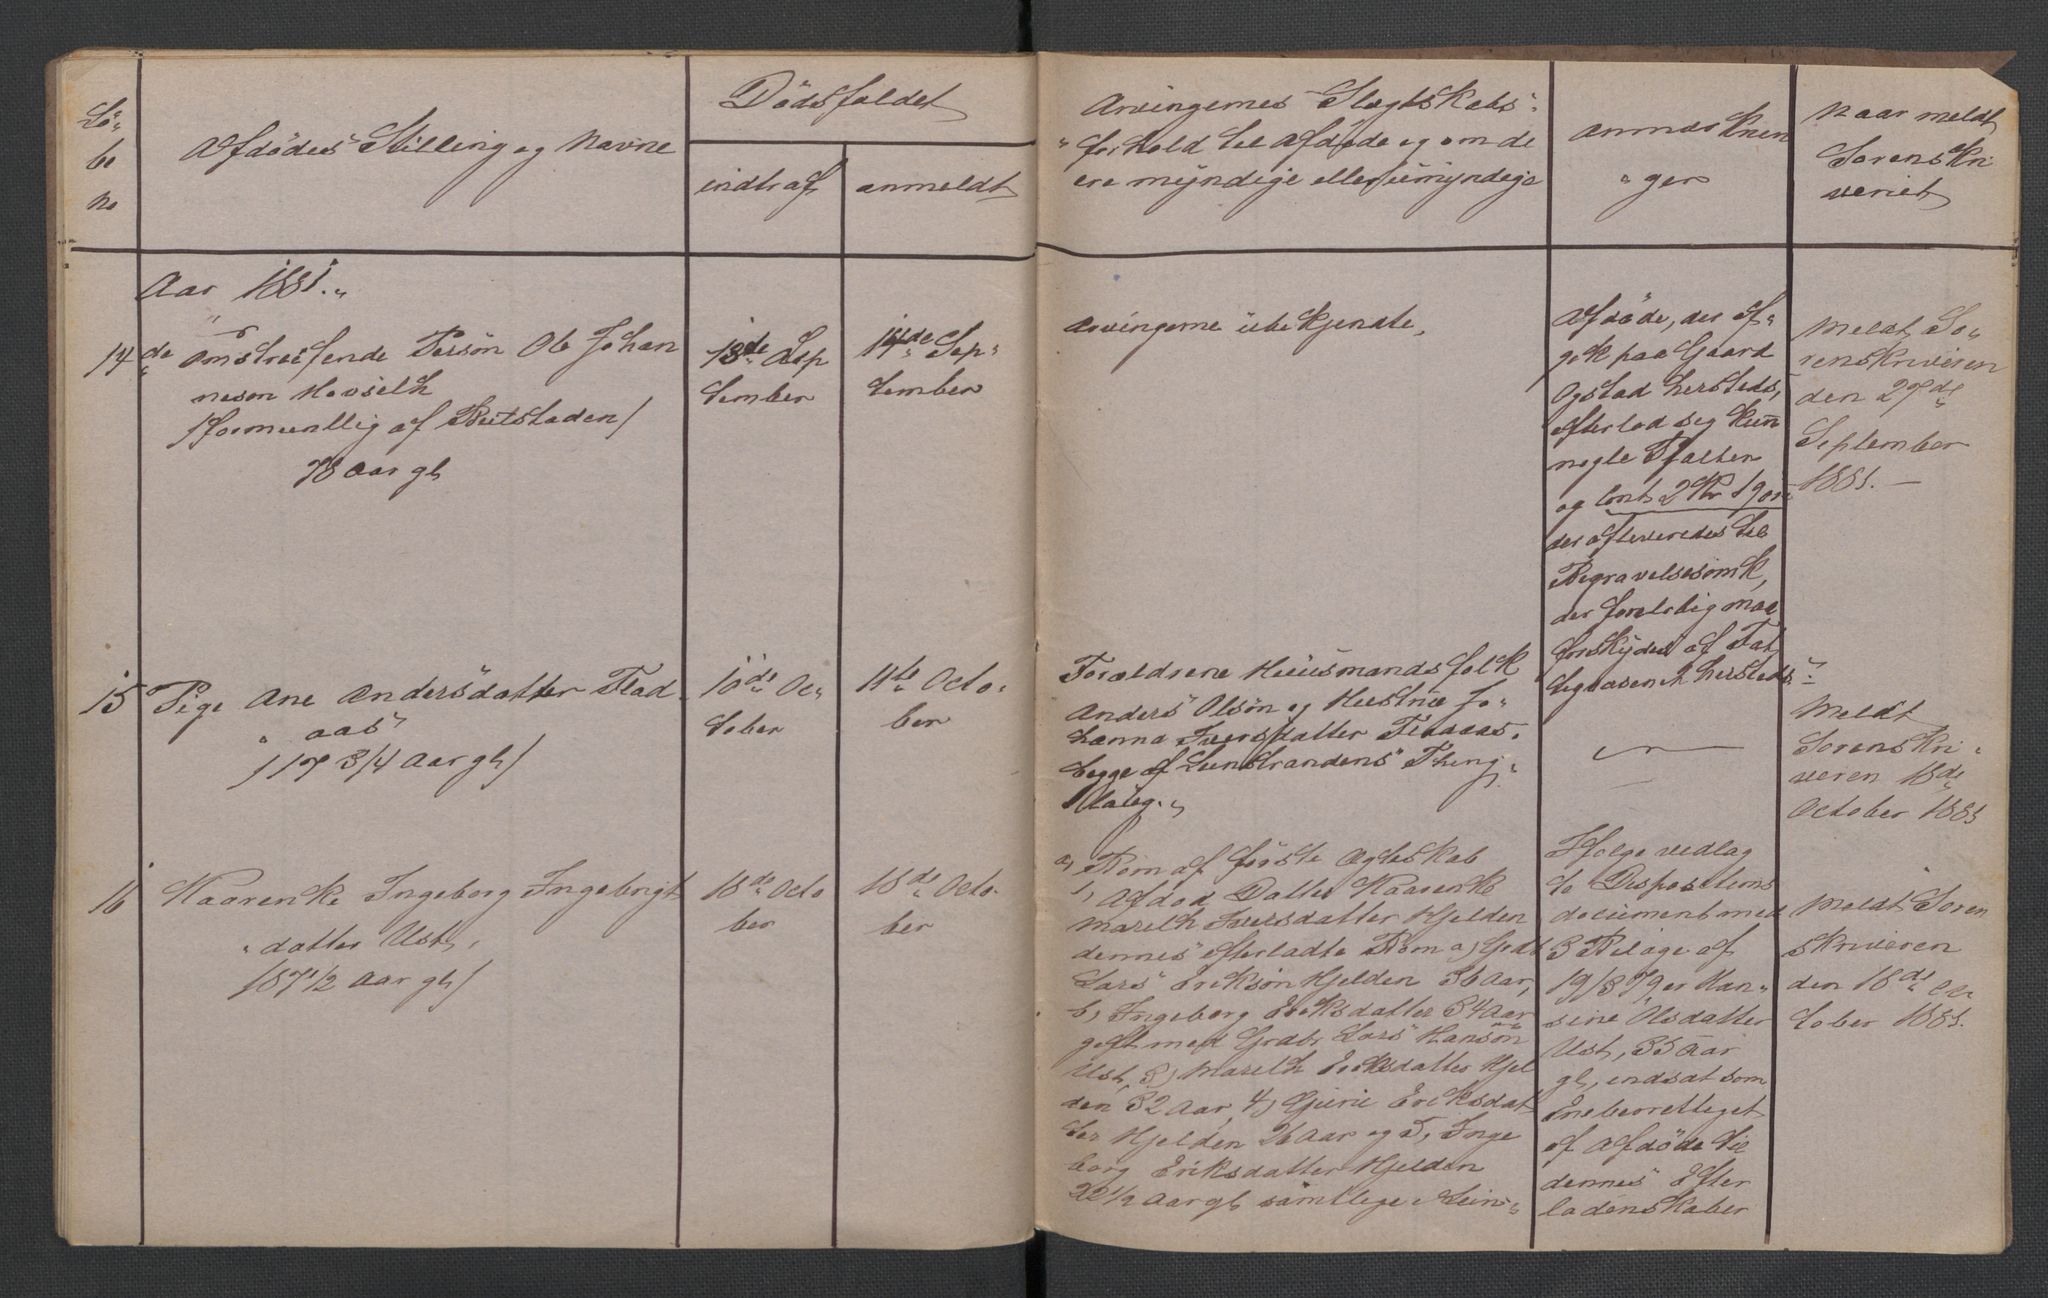 Lö-
be
no
Afdödes Stilling og Navne
Dödsfaldet
indtraf
anmeldt
Arvingernes Slægtskabs-
forhold til Afdöde og om de
ere myndige eller umyndige
Anmærknin
ger
Naar meldt
Sorenskri
veriet
Aar 1881.
14 de Omstreifende Person Ole Johan
nesen Hovseth
/formentlig af Beitstaden/
78 Aar gl
13de Sep
tember
14de Sep-
tember
Arvingerne ubekjendte,
Afdöde, der af-
gik paa Gaard
Ogstad Lersteds,
efterlod sig kun
nogle Fjalter
og Cont. 2 Kr 19 öre
der afleveredes til
Begravelsesomk,
der foreløbig maa
forskydes af Fat
tigvæsen
Meldt So-
renskriveren
den 27de
September
1881. —
15 Pige Ane Andersdatter Flad-
aas
/17 3/4 Aar gl/
10de Oc-
tober
11te Octo-
ber
Forældrene Huusmandsfolk
Anders Olsön og Hustrue Jo-
hanna Iversdatter Fladaas.
begge af Leenstrandens Thing-
laug.
Meldt
Sorenskri-
veren 18de
October 1881
16 Kaarenke Ingeborg Ingebrigts
datter Ust,
/87 1/2 Aar gl/
18de Octo
ber
18de Octo-
ber
a, Börn af förste Ægteskab
1, Afdöd Datter Kaarenke
Mareth Iversdatter Hjelden
dennes efterladte Börn a) Grdb
Lars Eriksön Hjelden 36 Aar,
b, Ingeborg Eriksdatter 34 Aar
gift med Grdbr Lars Hansön
Ust, 3, Mareth Eriksdatter Hjel
den 32 Aar, 4) Gurie Eriksdat
ter Hjelden 26 Aar og 5, Inge
borg Eriksdatter Hjelden
22 1/2 Aar gl samtlige i Lein-
Ifölge vedlag
te Dispositions
document med
3 Bilage af
19/8 79 er Han-
sine Olsdatter
Ust, 35 Aar
gl, indsat som
Eneberettiget
af Afdöde til
dennes Efter
ladenskaber
Meldt Soren
skriveren
den 18de Oc
tober 1881.